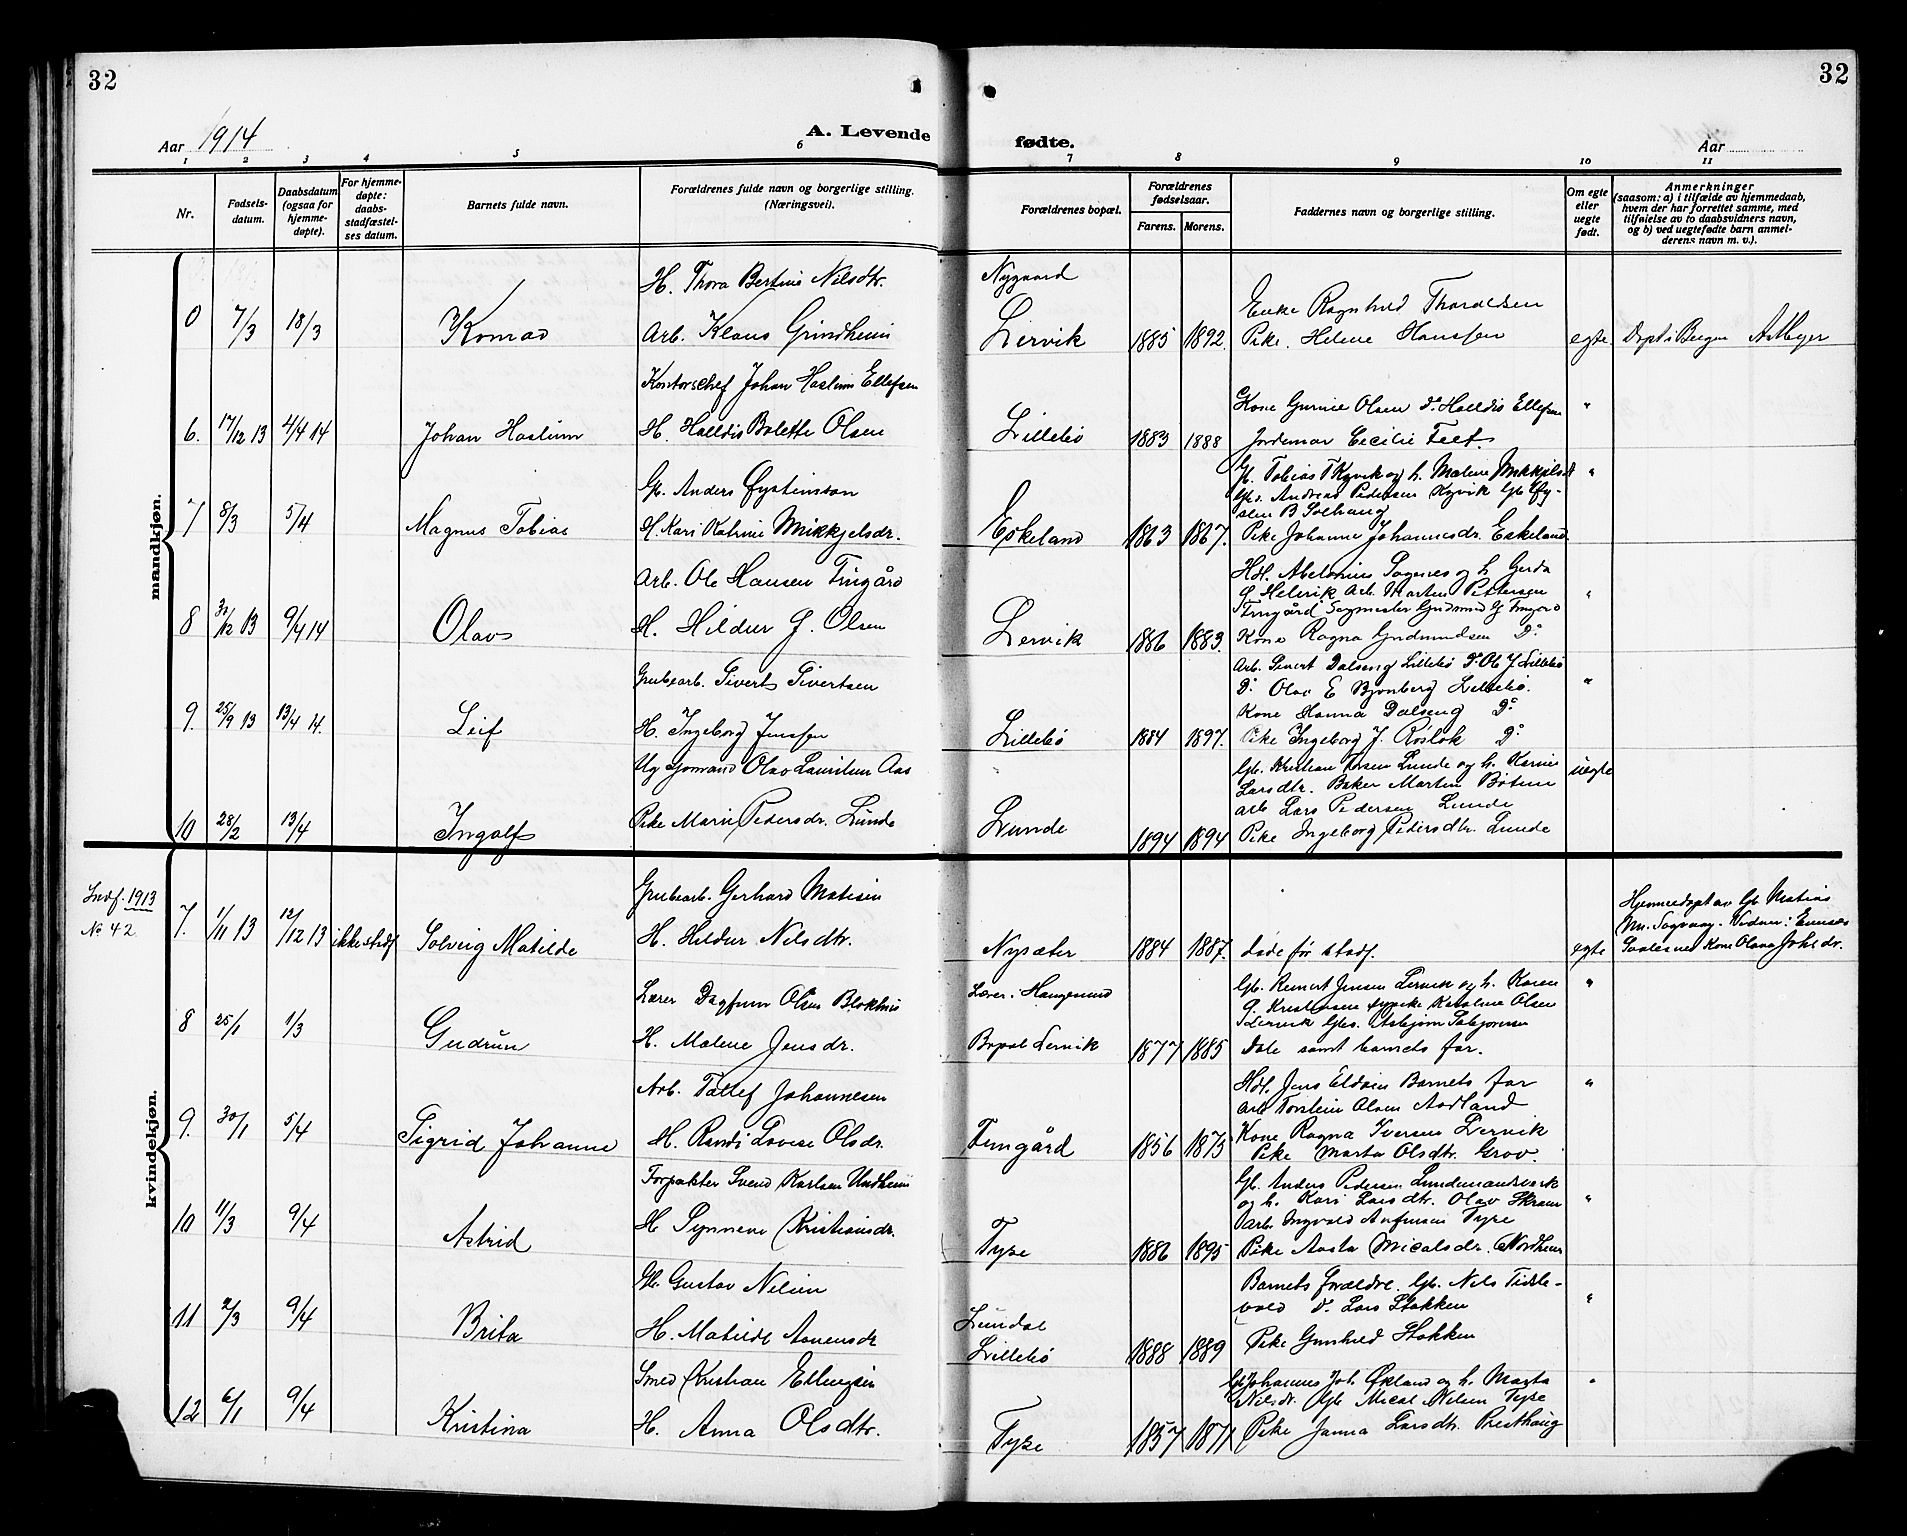 32
32
Aar 1914
A. Levende
fødte.
Aar
1 2 3 4 5 6 7 8 9 10 11
Nr.
Fødsels-
datum.
Daabsdatum
(ogsaa for
hjemme-
døpte).
For hjemme-
døpte:
daabs-
stadfæstel-
ses datum.
Barnets fulde navn.
Forældrenes fulde navn og borgerlige stilling.
(Næringsvei).
Forældrenes bopæl.
Forældrenes
fødselsaar.
Farens. Morens.
Faddernes navn og borgerlige stilling.
Om egte
eller
uegte
født.
Anmerkninger
(saasom: a) i tilfælde av hjemmedaab,
hvem der har forrettet samme, med
tilføielse av to daabsvidners navn,
og b) ved uegtefødte barn anmel-
derens navn m. v.).
mandkjøn.
H. Thora Bertine Nilsdtr.
Nygaard
Enke Ragnhild Thoralsen
0 7/3 18/3 Konrad Arb. Klaus Grindheim Lervik 1885 1892. Pike. Helene Hanssen egte. Døpt i Bergen
Kontorschef Johan Haslum Ellefsen
Kone Gurine Olsen Do Halldis Ellefsen "
6. 17/12 13 4/4 14 Johan Haslum H. Halldis Bolette Olsen Lillebø 1883 1888 Jordemor Cecilie Felt
Gb. Anders Øysteinson
Gb. Tobias T Kyvik og h. Malene Mikkjelsdt "
Gbs. Andreas Pedersen Kyvik Gb Øy-
sten B Solhaug
7 8/3 5/4 Magnus Tobias H. Kari Katrine Mikkjelsdr. Eskeland 1863 1867. Pike Johanne Johannesdr. Eskeland
Arb. Ole Hansen Tingård
Hdl. Abelonius Sagenes og h Gerda
G Helvik Arb. Marten Pettersen "
Tringård Sagmester Gudmund G Tingård
8 30/12 13 9/4 14 Olav H. Hildur G. Olsen Lervik 1886 1883. Kone Ragna Gudmundsen Do
Grubearb. Sivert Sivertsen
Arb. Sivert Dalseng Lillebø Do Ole J Lillebø
Do Olav E Bjonberg Lillebø. "
Kone Hanna Dalseng Do
9. 25/9 13 13/4 14. Leif H. Ingeborg Jenssen Lillebø 1884 1897. Pike Ingeborg J. Røsløk Do
Ug sjømand Olav Lauritsen Aas
Gb. Kristian Larsen Lunde og h. Karine uegte
Larsdtr. Baker Martin Bøtun
arb Lars Pedersen Lunde
10 28/2 13/4 Ingolf Pike Marie Pedersdr. Lunde Lunde 1894 1894 Pike Ingeborg Pedersdtr. Lunde
kvindekjøn.
Indf. 1913
No 42.
Grubearb. Gerhard Matisen
Hjemmedøpt av Gb Matias
7. 1/11 13 12/12 13 ikke stadf Solveig Matilde H. Hildur Nilsdtr. Nysæter 1884 1887. døde før stadf. egte
Kone Olava Johsdr.
Lærer Dagfinn Olsen Blokhus
Lærer i Haugesund
Gb. Reinert Jensen Lervik og h. Karen "
G. Kristensen Katrine Olsen
Lervik Gbs. Asbjørn
8 25/1 1/3 Gudrun H. Malene Jensdr. Bopæl Lervik 1877 1885 Dale samt barnets far.
Arb. Tollef Johannesen
Hdl. Jens Eldøen Barnets far "
Arb Torstein Olsen Aadland
Kone Ragna Iversen Lervik
9. 30/1 5/4 Sigrid Johanne H. Randi Lovise Olsdr. Femgård 1856 1875 Pike Marta Olsdtr. Grov.
Forpakter Svend Karlsen Undheim
Gb. Anders Pedersen Lundemandsverk
og h. Kari Larsdtr. Olav Skram "
Arb. Ingvald Anfinsen Tyse
10 11/3 9/4 Astrid H Synneve Kristiansdr. Tyse 1886 1895 Pike Aasta Micalsdr. Nordhus
Gb. Gustav Nilsen
Barnets forældre. Gb. Nils Tisle-
vold Do. Lars Stokken "
11 2/3 9/4 Brita H. Matilde Aanensdr Lundal
Lillebø 1888 1889 Pike Gunhild Stokken
Smed Kristian Ellingsen
Gb Johannes Joh. Økland og h. Magta "
Nilsdr. Gb Mical Nilsen Tyse
12 6/1 9/4 Kristina H. Anna Olsdtr. Tyse 1857 1871 Pike Janna Larsdtr. Presthaug